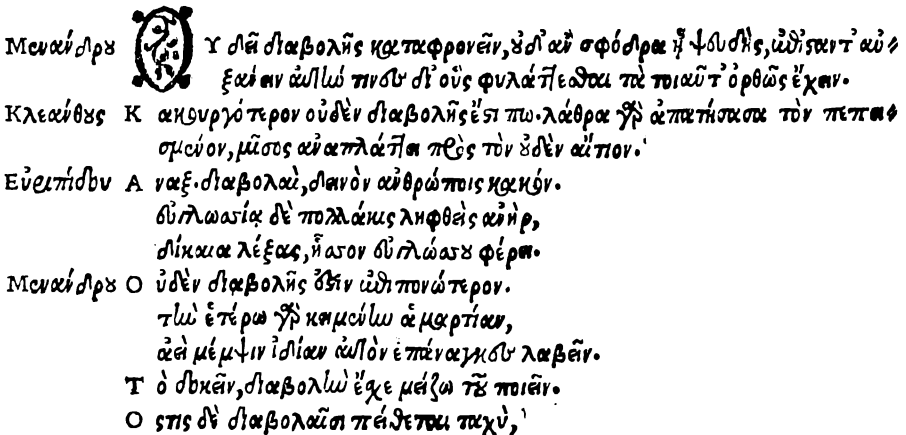 Μενάνδρου Ο Υ δεῖ διαβολῆς καταφρονεῖν, οὐδ' ἂν σφόδρα ᾖ ψευδὴς, ἐπίσταντ' αὐ=
ξαίνειν αὐτὴν τινὲς δι' οὓς φυλάττεσθαι τὰ τοιαῦτ' ὀρθῶς ἔχειν.
Κλεάνθους Κ ακουργότερον οὐδὲν διαβολῆς ἔστι πω. λάθρα γὰρ ἀπατήσασα τὸν πεπει=
σμένον, μῖσος ἀναπλάττει πρὸς τὸν οὐδὲν αἴτιον.
Εὐριπίδου Α ναξ. διαβολαὶ, δεινὸν ἀνθρώποις κακόν.
εὐγλωσσίᾳ δὲ πολλάκις ληφθεὶς ἀνὴρ,
δίκαια λέξας, ἧσσον εὐγλώσσου φέρει.
Μενάνδρου Ο ὐδὲν διαβολῆς ἐστὶν ἐπιπονώτερον.
τὴν ἑτέρω γὰρ κειμένην ἁμαρτίαν,
ἀεὶ μέμψιν ἰδίαν αὐτὸν ἐπάναγκες λαβεῖν.
Τ ὸ δοκεῖν, διαβολὴν ἔχε μείζω τοῦ ποιεῖν.
Ο στις δὲ διαβολαῖσι πείθεται ταχὺ,